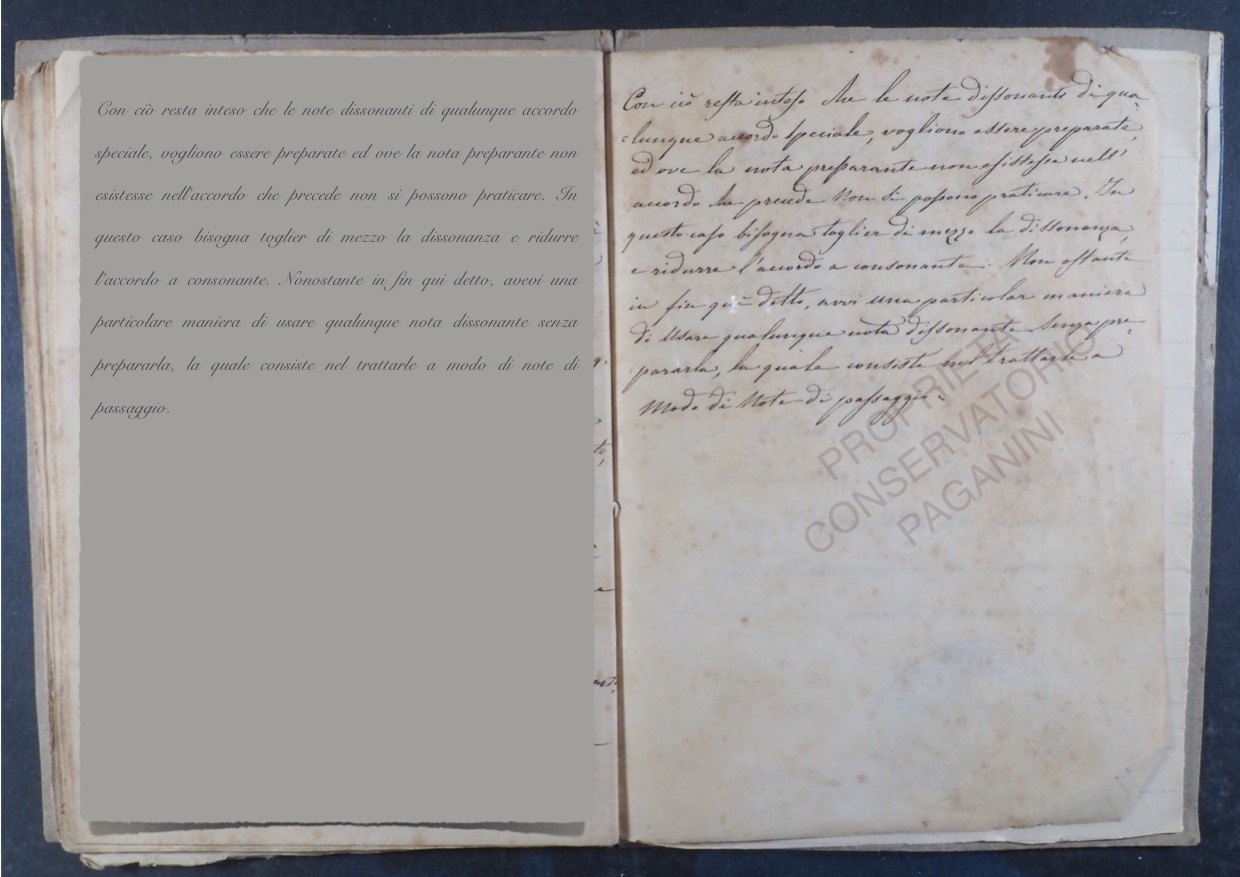 Con ciò resta inteso che le note dissonanti di qualunque accordo
speciale, vogliono essere preparate ed ove la nota preparante non
esistesse nell'accordo che precede non si possono praticare. In
questo caso bisogna toglier di mezzo la dissonanza e ridurre
l'accordo a consonante. Nonostante in fin qui detto, avevi una
particolare maniera di usare qualunque nota dissonante senza
prepararla, la quale consiste nel trattarle a modo di note di
passaggio.
Con ciò resta inteso che le note dissonanti di qua-
lunque accordo speciale, vogliono essere preparate,
ed ove la nota preparante non esistesse nell'
accordo che precede non si possono praticare. In
questo caso bisogna toglier di mezzo la dissonanza,
e ridurre l'accordo a consonante. Non ostante
in fin quì detto, avvi una particolar maniera
di usare qualunque nota dissonante senza pre-
pararla, la quale consiste nel trattarle a
modo di note di passaggio.
PROPRIETÀ
CONSERVATORIO
PAGANINI